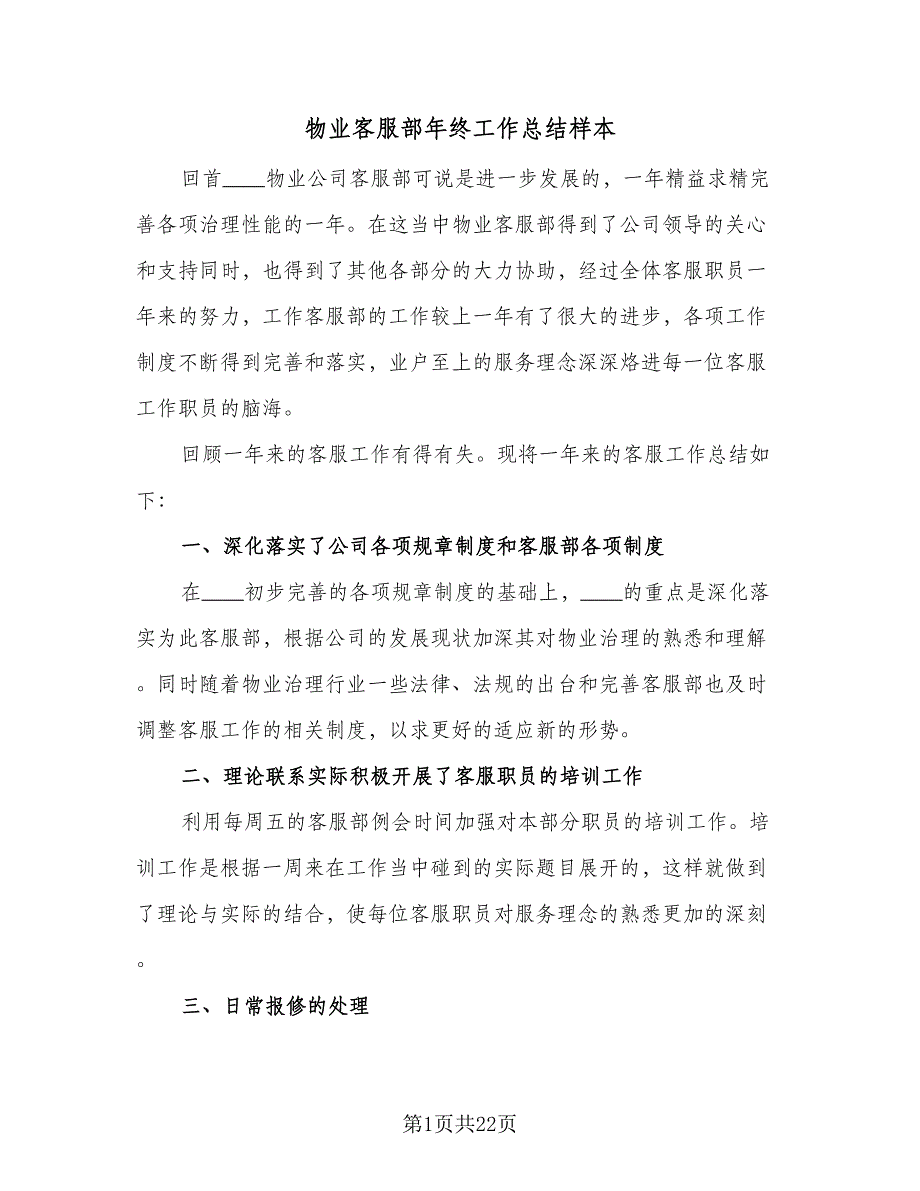 物业客服部年终工作总结样本
回首____物业公司客服部可说是进一步发展的，一年精益求精完
善各项治理性能的一年。在这当中物业客服部得到了公司领导的关心
和支持同时，也得到了其他各部分的大力协助，经过全体客服职员一
年来的努力，工作客服部的工作较上一年有了很大的进步，各项工作
制度不断得到完善和落实，业户至上的服务理念深深烙进每一位客服
工作职员的脑海。
回顾一年来的客服工作有得有失。现将一年来的客服工作总结如
下：
一、深化落实了公司各项规章制度和客服部各项制度
在____初步完善的各项规章制度的基础上，____的重点是深化落
实为此客服部，根据公司的发展现状加深其对物业治理的熟悉和理解
。同时随着物业治理行业一些法律、法规的出台和完善客服部也及时
调整客服工作的相关制度，以求更好的适应新的形势。
二、理论联系实际积极开展了客服职员的培训工作
利用每周五的客服部例会时间加强对本部分职员的培训工作。培
训工作是根据一周来在工作当中碰到的实际题目展开的，这样就做到
了理论与实际的结合，使每位客服职员对服务理念的熟悉更加的深刻
。
三、日常报修的处理
第1页共22页